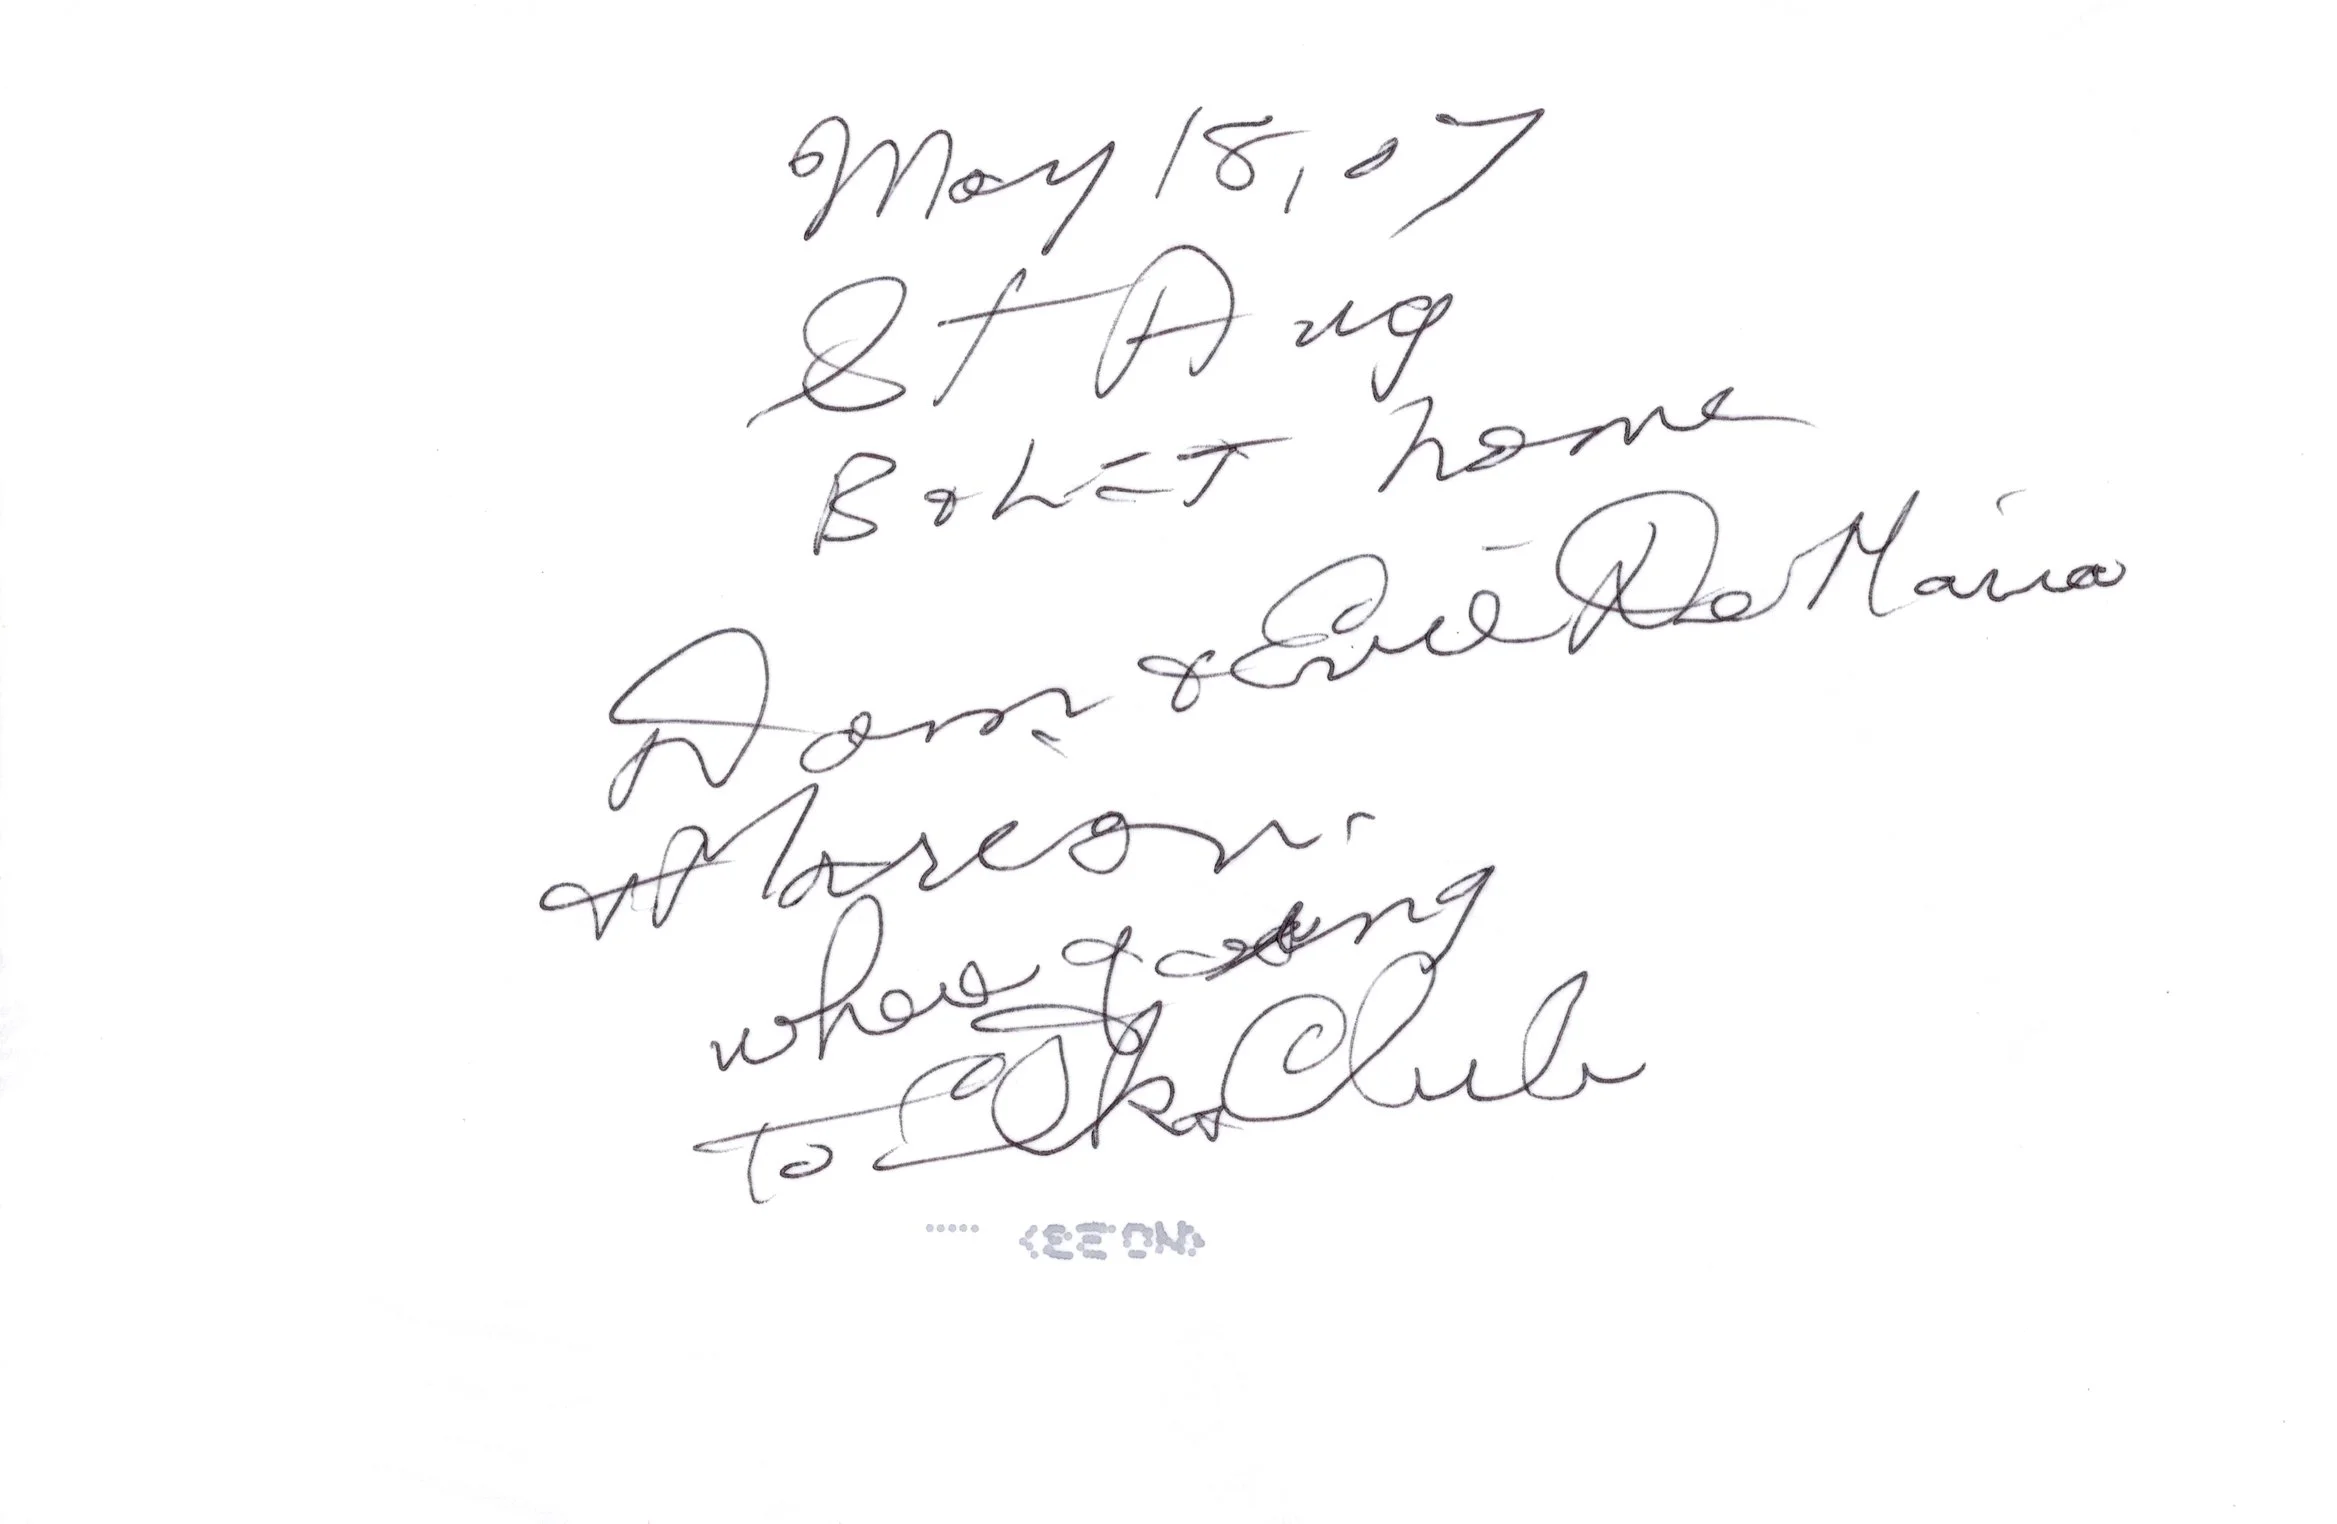 May 18, 07
St Aug
B & L E T home
Dom & Evie De Maria
& Marcom.
when going
To Elks Club